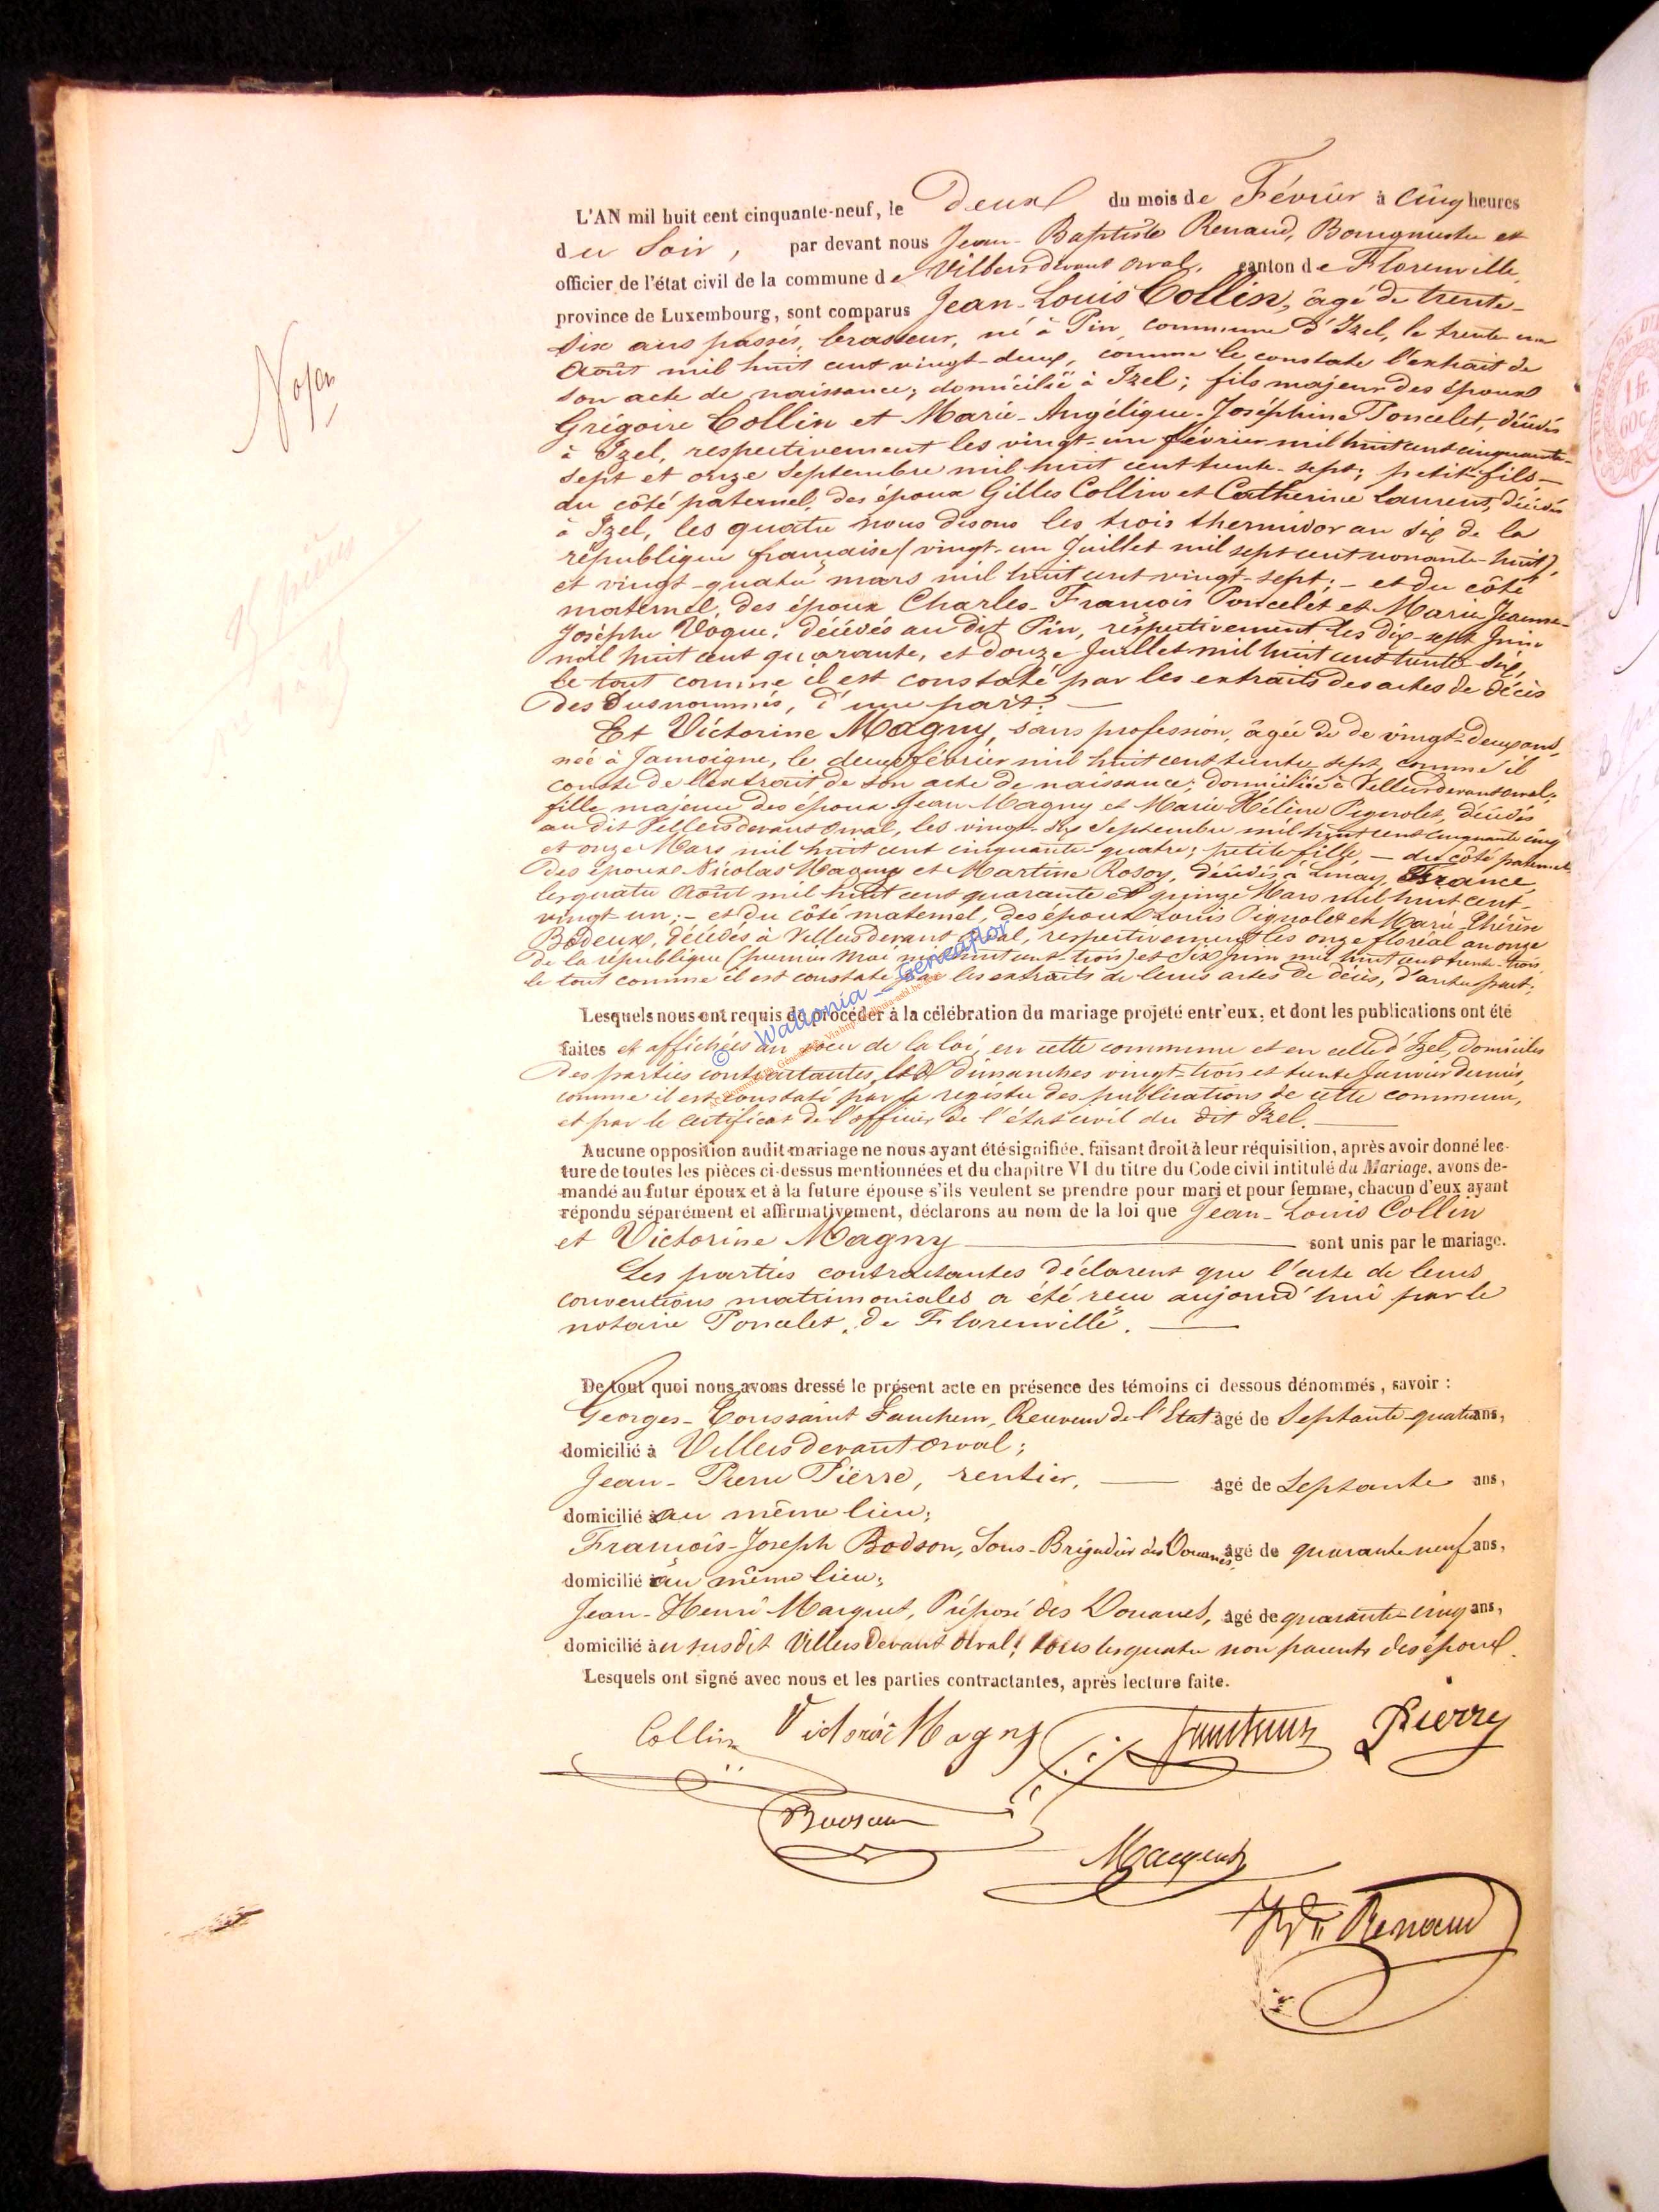 L'AN mil huit cent cinquante-neuf, le Deux du mois de Février à cinq heures
du Soir, par devant nous Jean-Baptiste Renaud, Bourgmestre et
officier de l'état civil de la commune de Villers devant Orval, canton de Florenville,
province de Luxembourg, sont comparus Jean-Louis Collin, âgé de trente-
six ans passés, brasseur, né à Pin, commune d'Izel, le trente-un
Août mil huit cent vingt-deux, comme le constate l'extrait de
son acte de naissance; domicilié à Izel; fils majeur des époux
Grégoire Collin et Marie-Angélique-Joséphine Poncelet, décédés
à Izel, respectivement les vingt-un février mil huit cent cinquante-
sept et onze Septembre mil huit cent trente-sept; petit-fils—
du côté paternel, des époux Gilles Collin et Catherine Laurent, décédés
à Izel, les quatre nous disons les trois thermidor an six de la
république française (vingt-un Juillet mil sept cent nonante-huit),
et vingt-quatre mars mil huit cent vingt-sept; - et du côté
maternel, des époux Charles-François Poncelet et Marie Jeanne-
Josèphe Vôgue, décédés au dit Pin, respectivement les dix-sept Juin
mil huit cent quarante, et douze Juillet mil huit cent trente-six,
le tout comme il est constaté par les extraits des actes de décès
des susnommés, d'une part. —
Et Victorine Magny, sans profession, âgée de de vingt-deux ans,
née à Jamoigne, le deux février mil huit cent trente sept, comme il
conste de l'extrait de son acte de naissance; domiciliée à Villers devant Orval;
fille majeure des époux Jean Magny et Marie Hélène Pignolet, décédés
au dit Villers devant Orval, les vingt-six Septembre mil huit cent cinquante cinq
et onze Mars mil huit cent cinquante-quatre; petite fille, — du côté paternel
des époux Nicolas Magny et Martine Rosoy, décédés à Linay, France,
les quatre Août mil huit cent quarante et quinze Mars mil huit cent-
vingt-un; - et du côté maternel, des époux Louis Pignolet et Marie-Thérèse
Bodeux, décédés à Villers devant Orval, respectivement les onze floréal an onze
de la république (premier Mai mil huit cent trois) et six juin mil huit cent trente-trois,
le tout comme il est constaté par les extraits de leurs actes de décès, d'autre part;
Lesquels nous ont requis de procéder à la célébration du mariage projeté entr'eux, et dont les publications ont été
faites et affichées au vœu de la loi, en cette commune et en celle d'Izel, domiciles
des parties contractantes, les dimanches vingt-trois et trente Janvier dernier,
comme il est constaté par le registre des publications de cette commune,
et par le certificat de l'officier de l'état civil du dit Izel. —
Aucune opposition audit mariage ne nous ayant été signifiée, faisant droit à leur réquisition, après avoir donné lec-
ture de toutes les pièces ci-dessus mentionnées et du chapitre VI du titre du Code civil intitulé du Mariage, avons de-
mandé au futur époux et à la future épouse s'ils veulent se prendre pour mari et pour femme, chacun d'eux ayant
répondu séparément et affirmativement, déclarons au nom de la loi que Jean-Louis Collin
et Victorine Magny — sont unis par le mariage.
Les parties contractantes déclarent que l'acte de leurs
conventions matrimoniales a été reçu aujourd'hui par le
notaire Poncelet, de Florenville. —
De tout quoi nous avons dressé le présent acte en présence des témoins ci dessous dénommés, savoir :
Georges-Toussaint Receveur de l'Etat âgé de Septante-quatre ans,
domicilié à Villers devant Orval;
Jean-Pierre Pierre, rentier, — âgé de Septante ans,
domicilié au même lieu;
François-Joseph Bodson, Sous-Brigadier des Douanes, âgé de quarante neuf ans,
domicilié au même lieu;
Jean-Henri Marquet, Préposé des Douanes, âgé de quarante-cinq ans,
domicilié au susdit Villers devant Orval; tous les quatre non parents des époux.
Lesquels ont signé avec nous et les parties contractantes, après lecture faite.
Collin Victorine Magny Pierre
Bodson
Marquet
Renaud
© Wallonia – Geneaflor